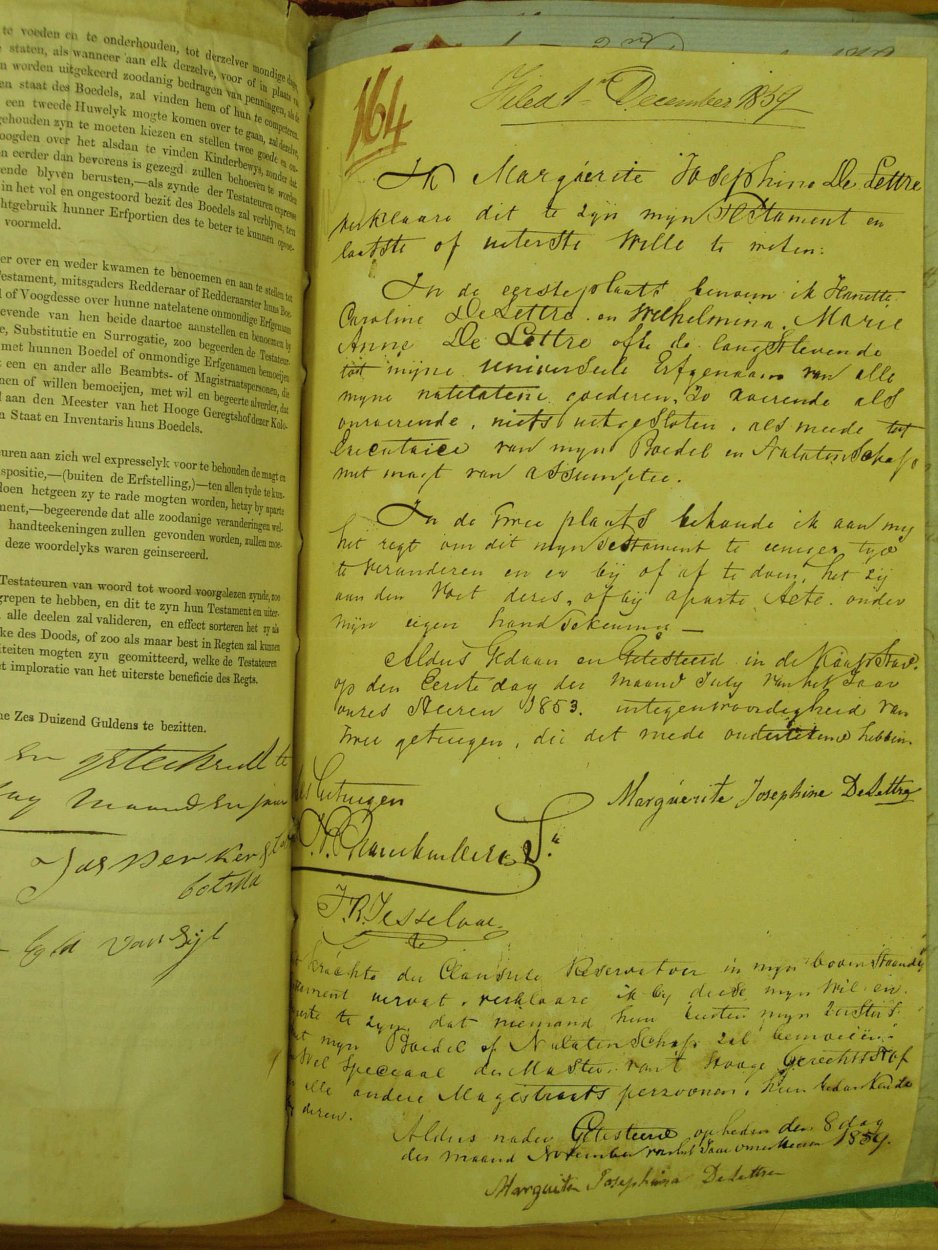 te voeden en te onderhouden, tot derzelver mondige dage,
staten, als wanneer aan elk derzelve, voor of in plaats van
n worden uitgekeerd zoodanig bedragen van penningen, als de
en staat des Boedels, zal vinden hem of hun te competeren.
een tweede Huwelyk mogte komen over te gaan, zal dezelve,
gehouden zyn te moeten kiezen en stellen twee goede en
oogden over het alsdan te vinden Kinderbewys, zonder dat
n eerder dan bevorens is gezegd zullen behoeven te worden
ende blyven berusten,—als zynde der Testateuren expresse
in het vol en ongestoord bezit des Boedels zal verblyven, ten
htgebruik hunner Erfportien des te beter te kunnen
voormeld.
er over en weder kwamen te benoemen en aan te stellen tot
estament, mitsgaders Redderaar of Redderaarster huns Boe-
l of Voogdesse over hunne natelatene onmondige Erfgenamen
evende van hen beide daartoe aanstellen en benoemen by
e, Substitutie en Surrogatie, zoo begeerden de Testateur-
met hunnen Boedel of onmondige Erfgenamen bemoeijen
t een en ander alle Beambts- of Magistraatspersonen, die
nen of willen bemoeijen, met wil en begeerte alverder, dat
l aan den Meester van het Hooge Geregtshof dezer Kolo-
n Staat en Inventaris huns Boedels.
euren aan zich wel expresselyk voor te behouden de magt en
spositie,—(buiten de Erfstelling,)—ten allen tyde te kun-
doen hetgeen zy te rade mogten worden, hetzy by aparte
ment,—begeerende dat alle zoodanige veranderingen wel-
handteekeningen zullen gevonden worden, zullen moe-
deze woordelyks waren geinsereerd.
Testateuren van woord tot woord voorgelezen zynde, zoo
grepen te hebben, en dit te zyn hun Testament en uiter-
alle deelen zal valideren, en effect sorteren het zy als
ke des Doods, of zoo als maar best in Regten zal kunnen
iteiten mogten zyn geomitteerd, welke de Testateuren
et imploratie van het uiterste beneficie des Regts.
ne Zes Duizend Guldens te bezitten.
en geteekend te
dag maand en jaar
Jasper
botha
van Zijl
164
Filed 1st December 1859
Ik Marguerite Josephine De Lettre
verklaare dit te zyn myn Testament en
laatste of uiterste Wille te weten:
In de eerste plaats benoem ik Henriette
Caroline De Lettre en Wilhelmina Marie
Anne De Lettre ofte de langstlevende
tot mijne universeele Erfgenaam van alle
myne natelatene goederen, zo roerende als
onroerende, niets uitgesloten, als meede tot
Executrice van myn Boedel en Nalatenschap
met magt van assumptie.
In de twee plaats behoude ik aan my
het regt om dit myn testament te eeniger tyd
te veranderen en er bij of af te doen, het zij
aan den Voet deses, of bij aparte Acte onder
mijn eigen handtekening —
Aldus Gedaan en Getesteerd in de Kaapstad
op den Eerste dag der maand July van het Jaar
onzes Heeren 1853. in tegenwoordigheid van
twee getuigen, die dit mede ondertekend hebben.
Als Getuigen
Marguerite Josephine De Lettre
Sr.
J.R. Tesselaar
Krachte der Clausule Reservatoir in myn bovenstaande
tament vervat, verklaare ik by deese myn Wil en
te zyn, dat niemand hun buiten myn
met myn Boedel of Nalatenschap zal bemoeien
Wel speciaal den Master van't Hooge Gerechtshof
en alle andere Magistraats persoonen, hun bedankende
deren.
Aldus nader Getesteerd op heden den 8 dag
der maand November van het Jaar onzes Heeren 1859.
Marguerite Josephina De Lettre